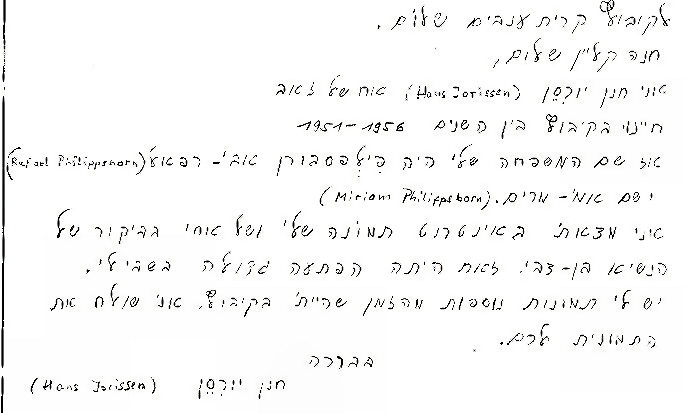 לקיבוץ קרית ענבים שלום.
חנה קליין שלום,
אני חנן יוריסן (Hans Jorissen) אח של זאב
חיינו בקיבוץ בין השנים 1951-1956
אז שם המשפחה שלי היה פיליפסבורן אבי - רפאל (Rafael Philippsborn)
ושם אמי - מרים. (Miriam Philippsborn)
אני מצאתי באינטרנט תמונה שלי ושל אחי בביקור של
הנשיא בן-צבי. זאת היתה הפתעה גדולה בשבילי.
יש לי תמונות נוספות מהזמן שהייתי בקיבוץ. אני שולח את
התמונות לכם.
בברכה
חנן יוריסן (Hans Jorissen)